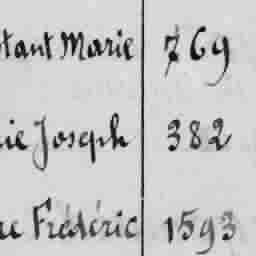 stant Marie 769
ie Joseph 382
re Frédéric 1593